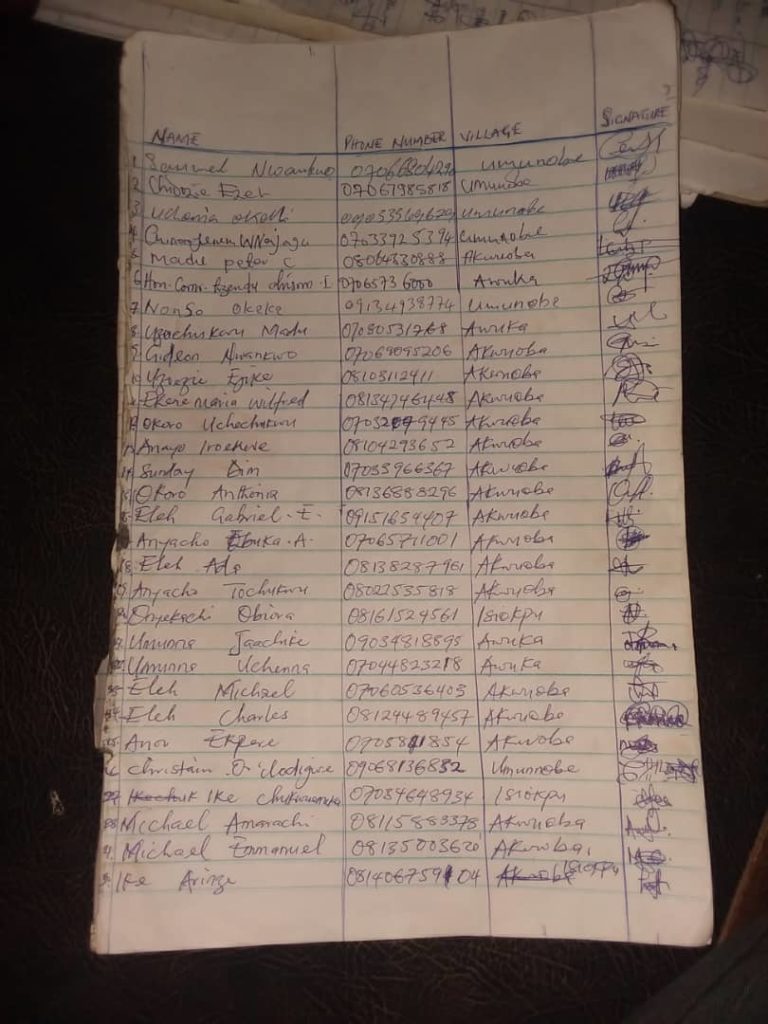 NAME PHONE NUMBER VILLAGE SIGNATURE
1 Samuel Nwankwo Umunobe
2 Chinozie Ezeh 07067985818 Umunobe
3 Udenia Okolli Umunobe
4 07033925394 Umunobe
5 Madu peter C 08064830888 Akunoba
6 Hon. Com. 07065736000 Awuka
7 Nonso Okeke 09134938774 Umunobe
8 Ugochukwu Madu 07080531768 Awuka
9 Gideon Nwankwo 07069095206 Akunoba
10 Ejike 08103112411 Akunoba
11 Ekere Maria Wilfred 08134746448 Akunoba
12 Okoro Uchechukwu Akunoba
13 Anayo Iroekwe 08104293652 Akunoba
14 Sunday Dim 07033966367 Akunoba
15 Okoro Anthonia 08136883296 Akunoba
16 Eleh Gabriel. E. 09151654407 Akunoba
Anyacho Ebuka. A. 07065711001 Akunoba
18 Eleh Ada 08138287961 Akunoba
19 Anyacho Tochukwu 08022535818 Akunoba
Onyekachi Obiora 08161524561 Isiokpu
Umunna Jaachike 09034818895 Awuka
Umunna Uchenna 07044823218 Awuka
Eleh Michael 07060536403 Akunoba
24 Eleh Charles 08124489457 Akunoba
25 Ekpere 0905841854 Akunoba
26 Christain .O. 09068136832 Umunnobe
27 Ike 07034648934 Isiokpu
28 Michael Amarachi 08115883378 Akunoba
29 Michael Emmanuel 08135003620 Akunoba.
30 Ike Arinze 081406759104 Isiokpu